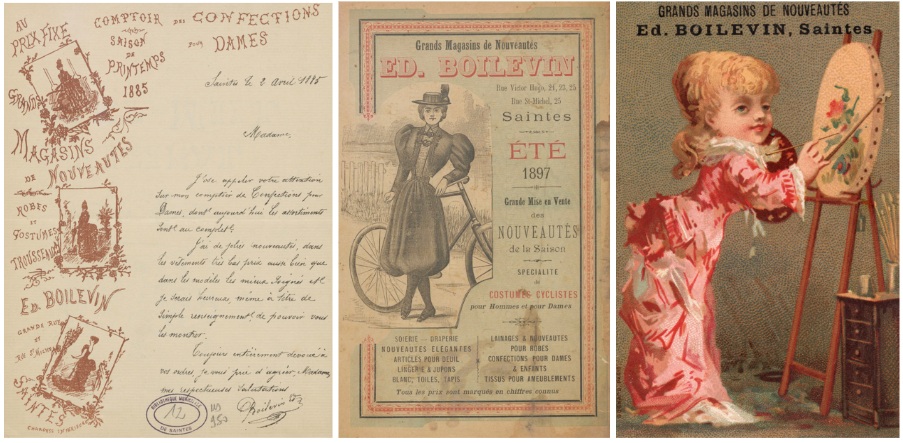 AU
PRIX FIXE
COMPTOIR DES CONFECTIONS
SAISON POUR DAMES
DE
PRINTEMPS
1885
GRANDS
MAGASINS
DE NOUVEAUTÉS
ROBES
ET
COSTUMES
TROUSSEAUX
ED. BOILEVIN
GRANDE RUE
ET
RUE ST MICHEL
SAINTES
CHARENTE INFÉRIEURE
Saintes le 2 Avril 1885
Madame,
J'ose appeler votre attention
sur mon comptoir de Confections pour
Dames, dont aujourd'hui les assortiments
sont au complet.
J'ai de jolies nouveautés, dans
les vêtements très bas prix aussi bien que
dans les modèles les mieux soignés et
je serais heureux, même à titre de
simple renseignement de pouvoir vous
les montrer.
Toujours entièrement dévoué à
vos ordres, je vous prie d'agréer, Madame,
mes respectueuses salutations
Boilevin
BIBLIOTHÈQUE MUNICIPALE
DE SAINTES
12
Grands Magasins de Nouveautés
ED. BOILEVIN
Rue Victor Hugo, 21, 23, 25
Rue St-Michel, 25
Saintes
ÉTÉ
1897
Grande Mise en Vente
des
NOUVEAUTÉS
de la Saison
SPÉCIALITÉ
DE
COSTUMES CYCLISTES
pour Hommes et pour Dames
SOIERIE - DRAPERIE
NOUVEAUTÉS ÉLÉGANTES
ARTICLES POUR DEUIL
LINGERIE & JUPONS
BLANC, TOILES, TAPIS
LAINAGES & NOUVEAUTÉS
POUR ROBES
CONFECTIONS POUR DAMES
& ENFANTS
TISSUS POUR AMEUBLEMENTS
Tous les prix sont marqués en chiffres connus
GRANDS MAGASINS DE NOUVEAUTÉS
ED. BOILEVIN, Saintes